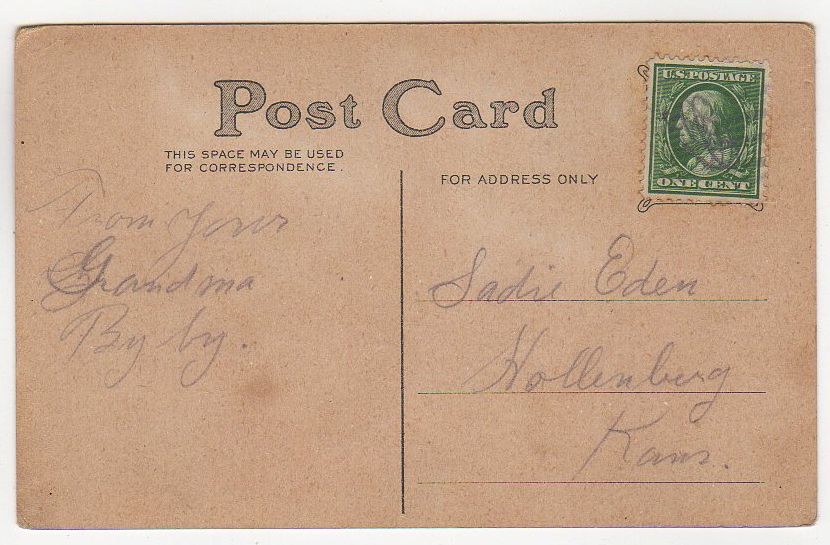 Post Card
THIS SPACE MAY BE USED
FOR CORRESPONDENCE.
FOR ADDRESS ONLY
U.S. POSTAGE
ONE CENT
From your
Grandma
By by.
Sadie Eden
Hollenberg
Kans.